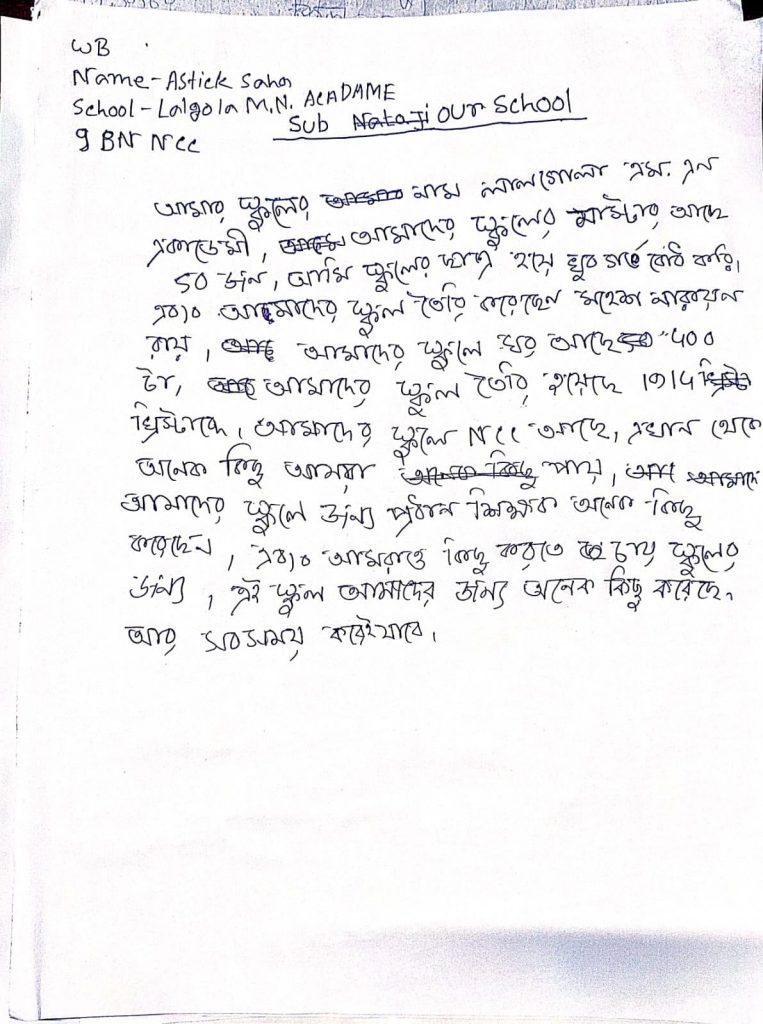 WB
Name - Astick Saha
School - Lalgola M.N. ACADAME
Sub Nataji OUr School
9 BN NCC
আমার স্কুলের নাম লালগোলা এম. এন
একাডেমী, আমাদের স্কুলের মাস্টার আছে
৫০ জন, আমি স্কুলের ছাত্র হয়ে খুব গর্ভ বোধ করি।
এবং আমাদের স্কুল তৈরি করেছেন মহেশ নারায়ন
রায়, আমাদের স্কুলে ঘর আছে ১০০
টা, আমাদের স্কুল তৈরি হয়েছে 1914
খ্রিস্টাব্দে, আমাদের স্কুলে NCC আছে, এখান থেকে
অনেক কিছু আমরা পায়, আমাদে
আমাদের স্কুলে জন্য প্রধান শিক্ষক অনেক কিছু
করেছেন, এবং আমরাও কিছু করতে চায় স্কুলের
জন্য, এই স্কুল আমাদের জন্য অনেক কিছু করেছে,
আর সবসময় করেই যাবে।